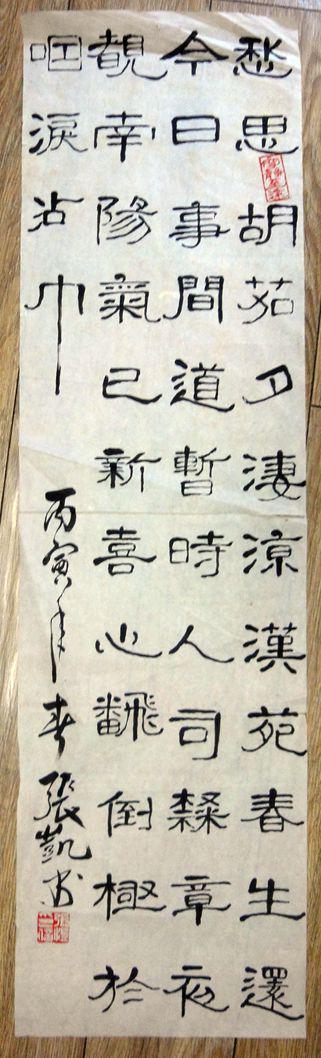 愁思胡茄夕淒涼漢苑春生還
今日事間道暫時人司隸章初
覩南陽氣已新喜心飜倒極於
咽淚沾巾
丙寅年春張凱书